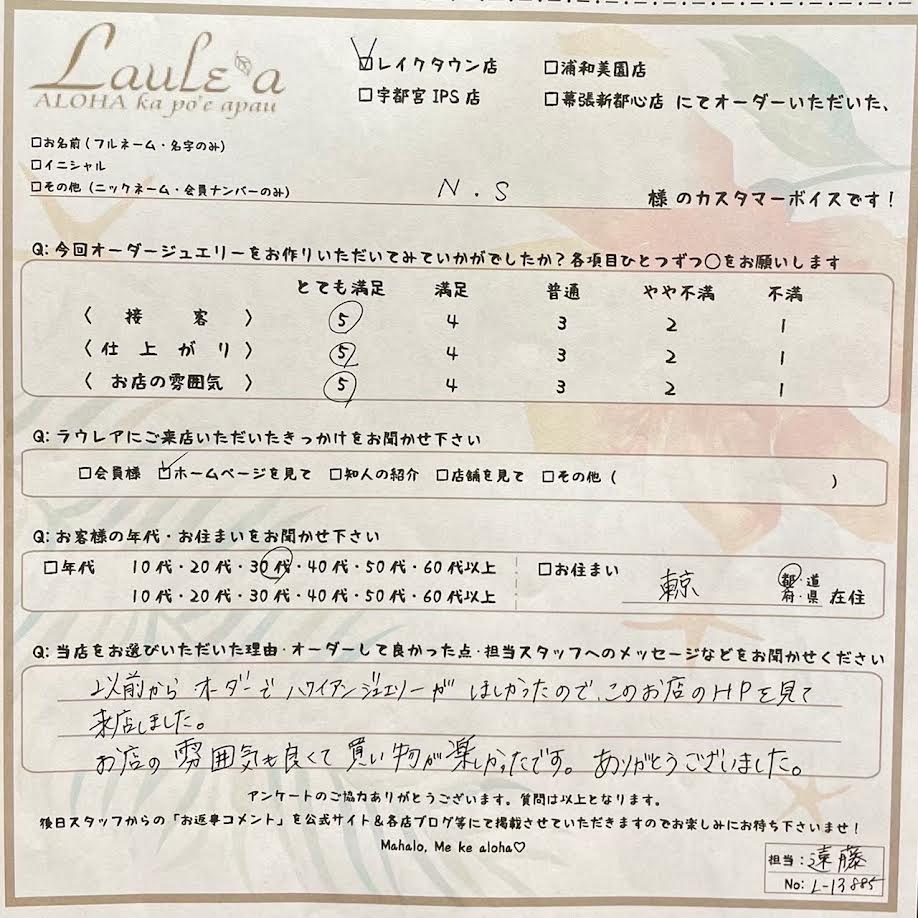 Laule'a
ALOHA ka po'e apau
☑レイクタウン店 □浦和美園店
□宇都宮IPS店 □幕張新都心店 にてオーダーいただいた、
□お名前(フルネーム・名字のみ)
□イニシャル
□その他(ニックネーム・会員ナンバーのみ) N.S 様のカスタマーボイスです!
Q:今回オーダージュエリーをお作りいただいてみていかがでしたか?各項目ひとつずつ○をお願いします
とても満足 満足 普通 やや不満 不満
〈 接 客 〉 5 4 3 2 1
〈仕上がり〉 5 4 3 2 1
〈 お店の雰囲気 〉 5 4 3 2 1
Q:ラウレアにご来店いただいたきっかけをお聞かせ下さい
□会員様 ☑ホームページを見て □知人の紹介 □店舗を見て □その他( )
Q:お客様の年代・お住まいをお聞かせ下さい
□年代 10代・20代・30代・40代・50代・60代以上 □お住まい 東京 都・道
10代・20代・30代・40代・50代・60代以上 府・県 在住
Q:当店をお選びいただいた理由・オーダーして良かった点・担当スタッフへのメッセージなどをお聞かせください
以前から オーダーで ハワイアンジュエリーが ほしかったので、このお店のHPを見て
来店しました。
お店の 雰囲気も良くて 買い物が楽しかったです。 ありがとうございました。
アンケートのご協力ありがとうございます。質問は以上となります。
後日スタッフからの「お返事コメント」を公式サイト&各店ブログ等にて掲載させていただきますのでお楽しみにお待ち下さいませ!
Mahalo, Me ke aloha♡
担当:遠藤
No: L-13885